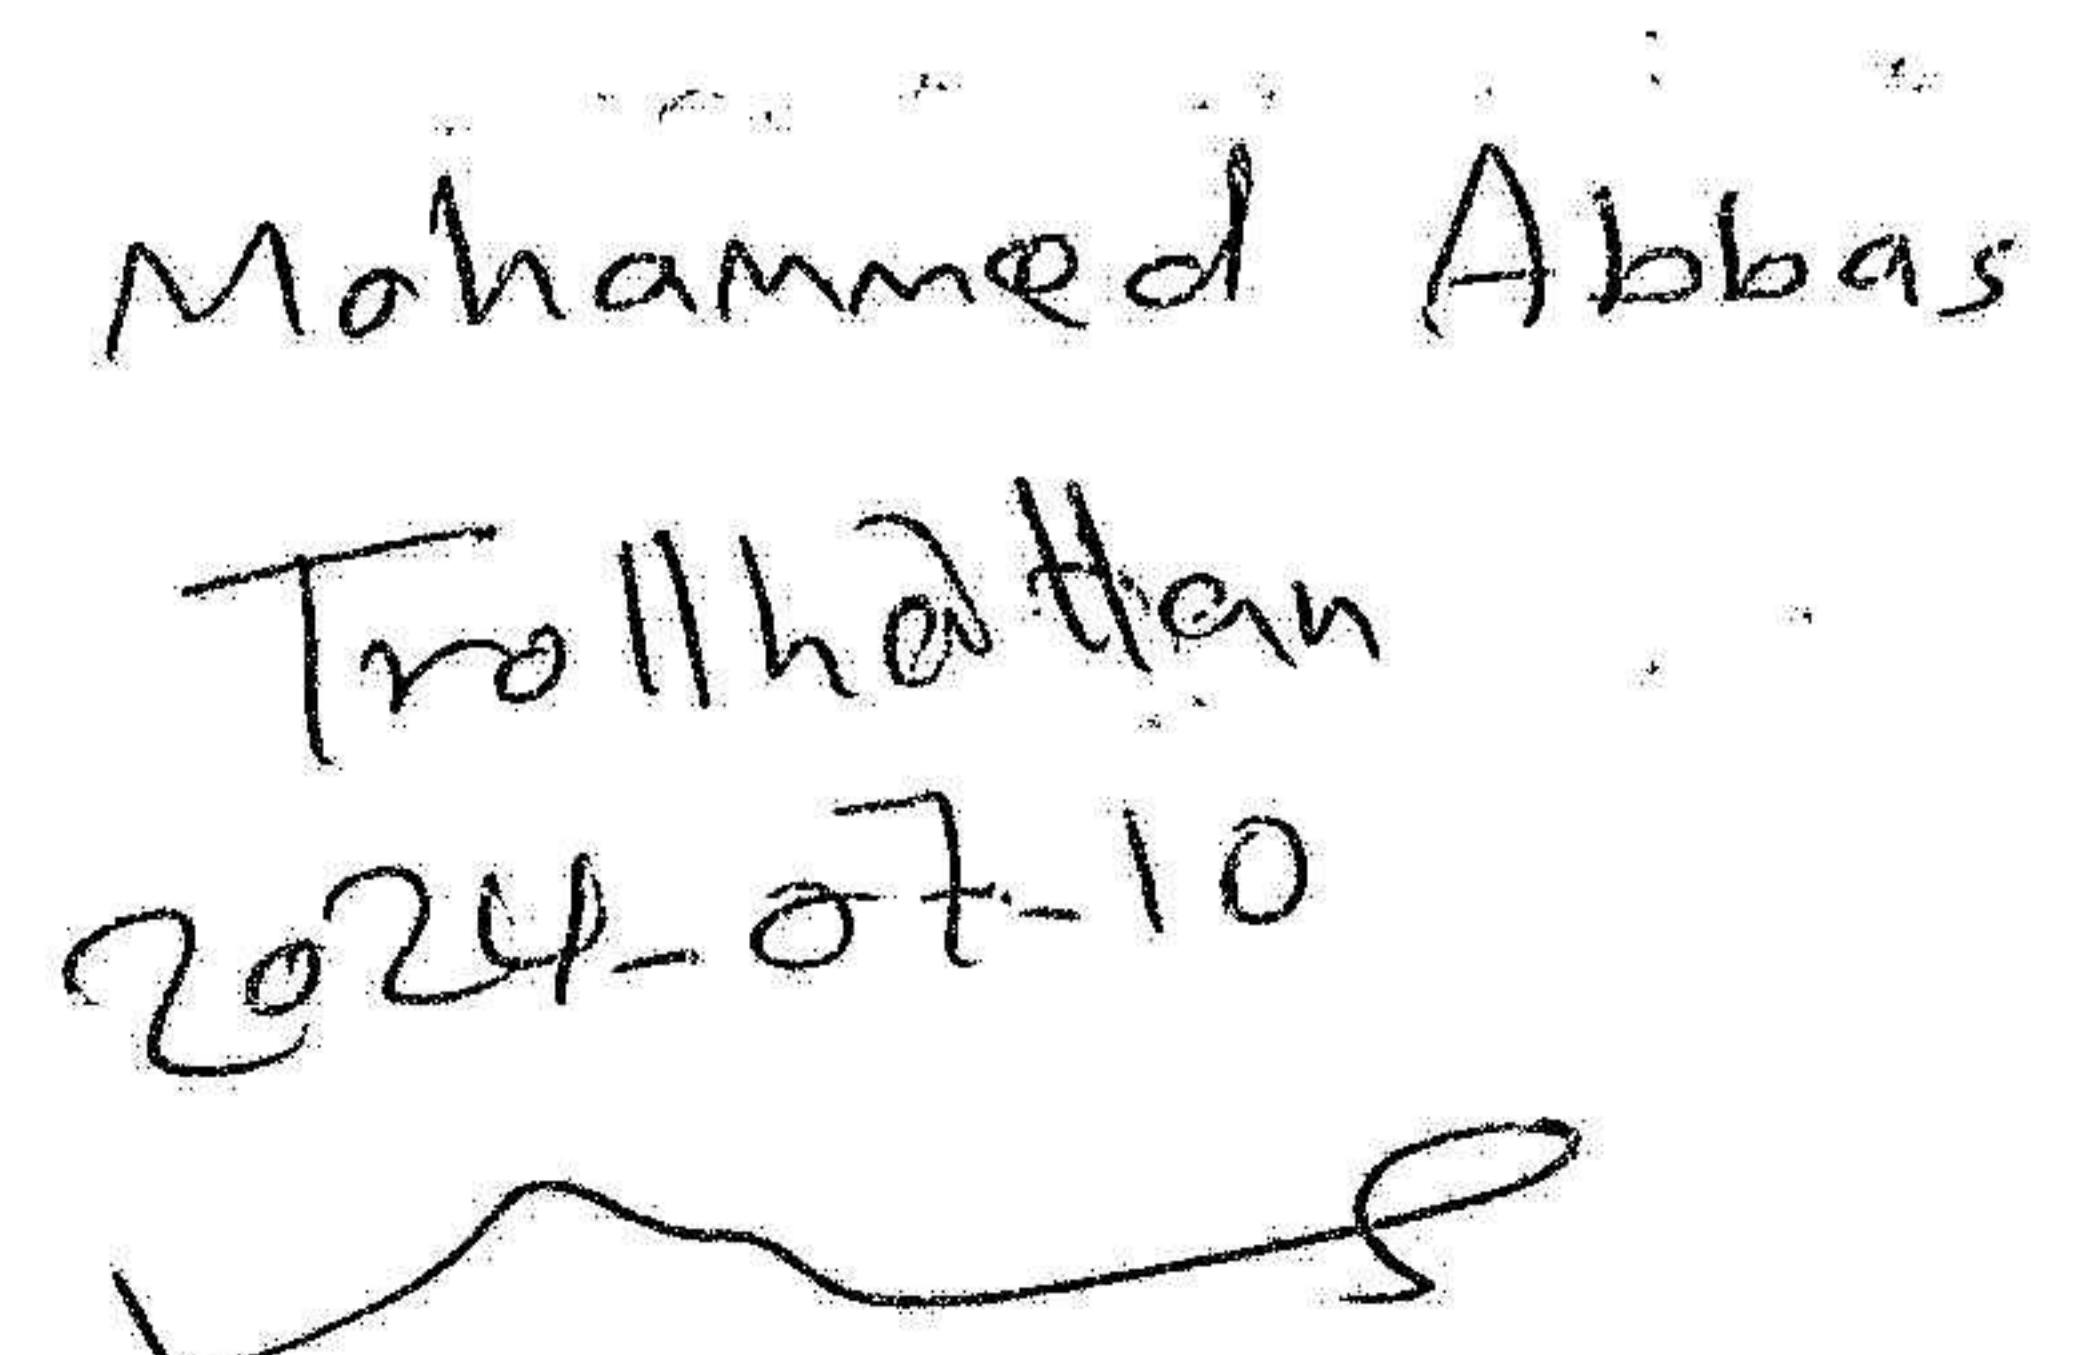 Mohammed Abbas
Trollhättan
2024-07-10